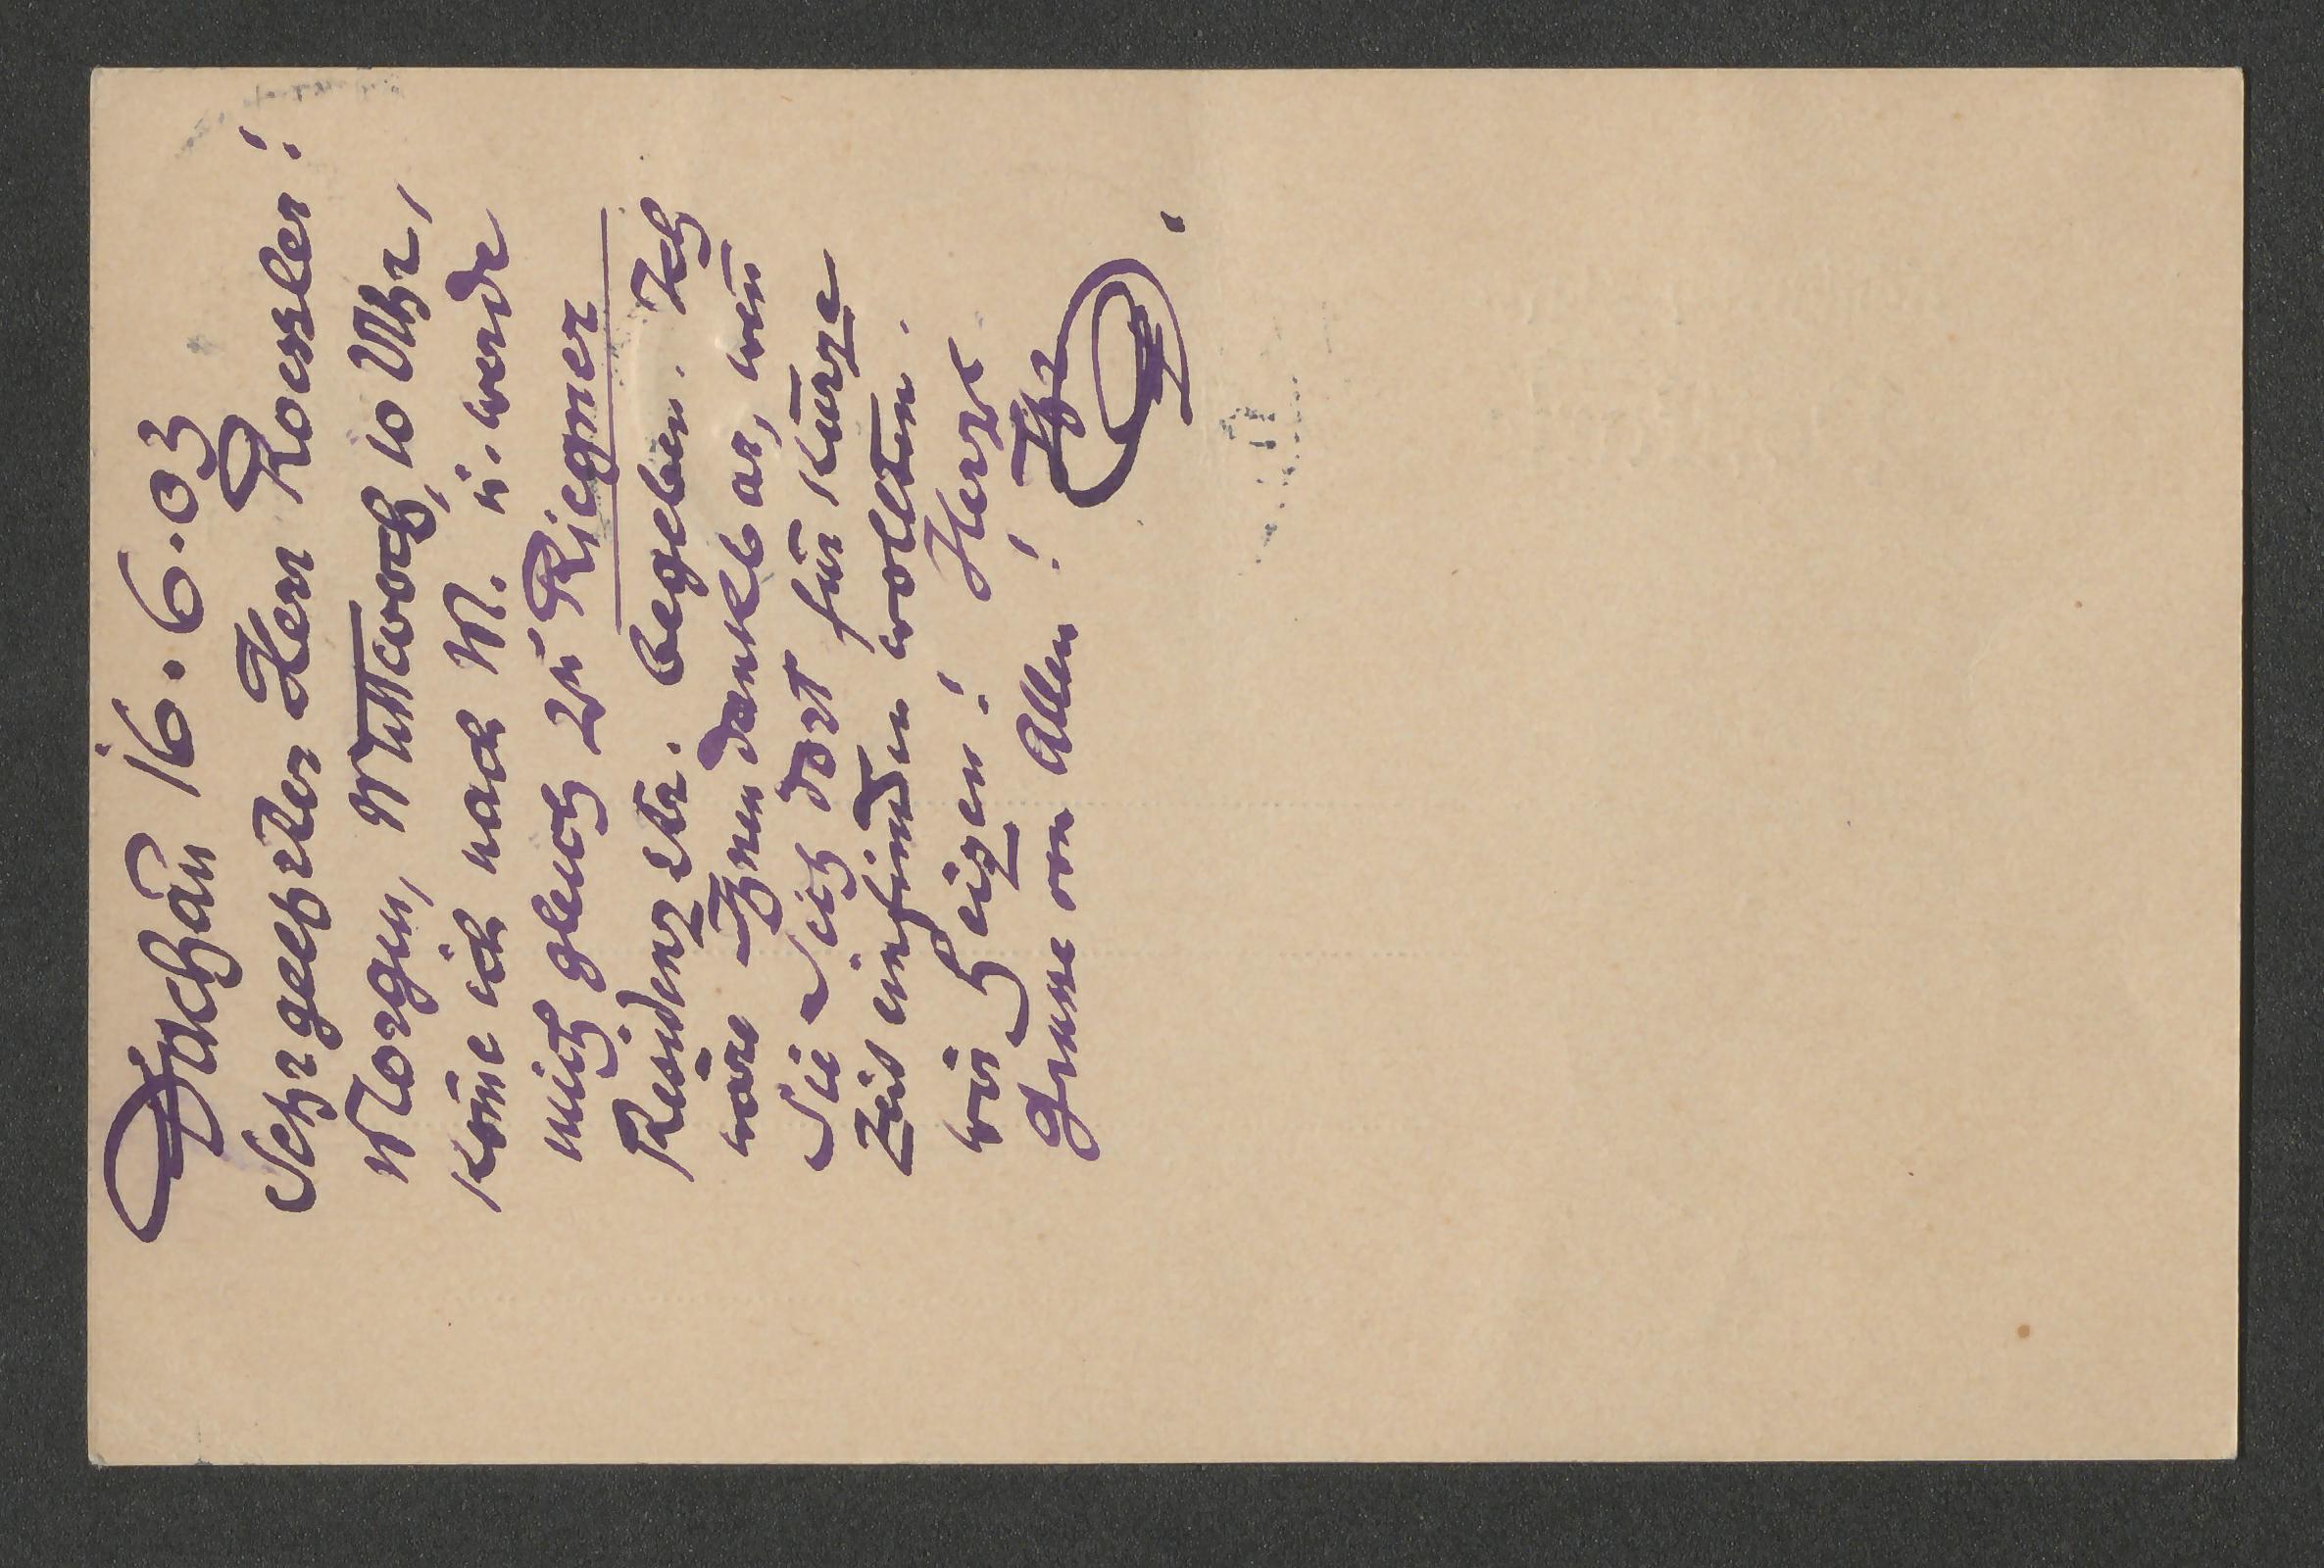 Dachau 16.6.03
Sehr geehrter Herr Roessler!
Morgen, Mittwoch, 10 Uhr,
kom̅e ich nach M. u. werde
mich gleich zu Riegner
Residenzstr. begeben. Ich
wäre Ihnen dankbar, wen̅
Sie sich dort für kurze
Zeit einfinden wollten.
wir Herzl
Grusse von Allen! Ihr